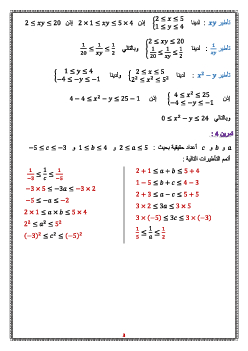 تأطير xy : لدينا { 2 ≤ x ≤ 5 ; 1 ≤ y ≤ 4 إذن 2 × 1 ≤ xy ≤ 5 × 4 إذن 2 ≤ xy ≤ 20
تأطير 1/xy : لدينا { 2 ≤ xy ≤ 20 ; 1/20 ≤ 1/xy ≤ 1/2 وبالتالي 1/20 ≤ 1/xy ≤ 1/2
تأطير x² − y : لدينا { 2 ≤ x ≤ 5 ; 2² ≤ x² ≤ 5² ولدينا { 1 ≤ y ≤ 4 ; −4 ≤ −y ≤ −1
إذن { 4 ≤ x² ≤ 25 ; −4 ≤ −y ≤ −1 إذن 4 − 4 ≤ x² − y ≤ 25 − 1
وبالتالي 0 ≤ x² − y ≤ 24
تمرين 4 :
a و b و c أعداد حقيقية بحيث : 2 ≤ a ≤ 5 و 1 ≤ b ≤ 4 و −5 ≤ c ≤ −3
أتمم التأطيرات التالية :
2 + 1 ≤ a + b ≤ 5 + 4
1 − 5 ≤ b + c ≤ 4 − 3
2 + 3 ≤ a − c ≤ 5 + 5
3 × 2 ≤ 3a ≤ 3 × 5
3 × (−5) ≤ 3c ≤ 3 × (−3)
1/5 ≤ 1/a ≤ 1/2
1/−3 ≤ 1/c ≤ 1/−5
−3 × 5 ≤ −3a ≤ −3 × 2
−5 ≤ −a ≤ −2
2 × 1 ≤ a × b ≤ 5 × 4
2² ≤ a² ≤ 5²
(−3)² ≤ c² ≤ (−5)²